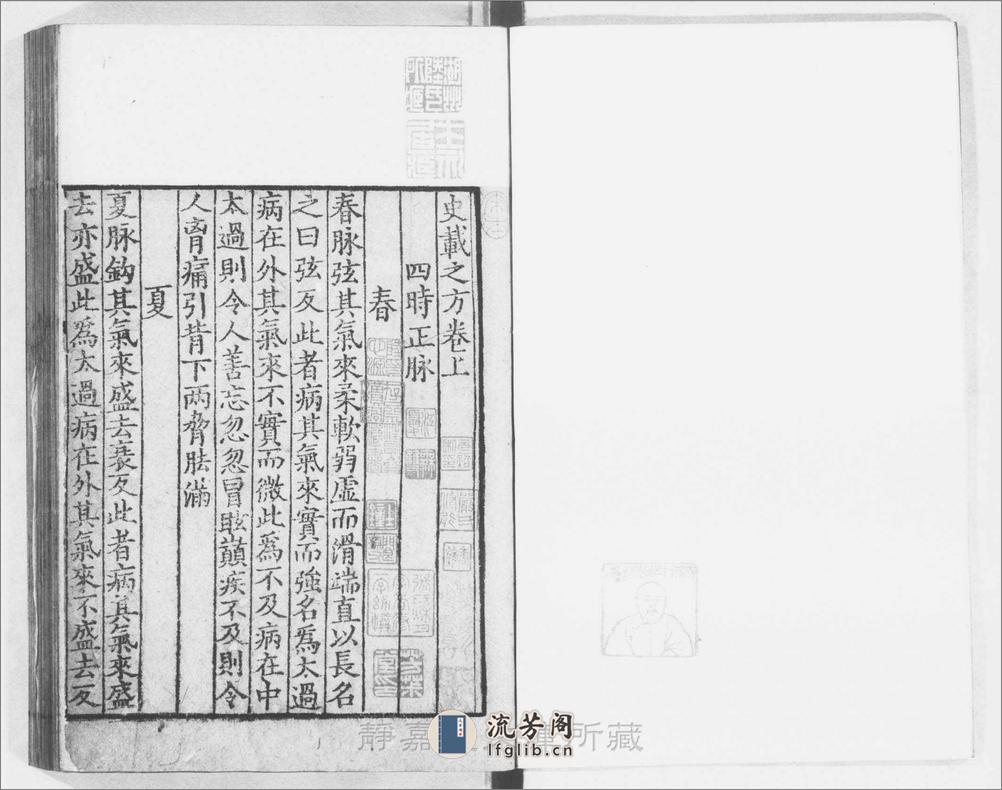 史載之方卷上
四時正脉
春
春脉弦其氣來柔軟弱虛而滑端直以長名
之曰弦反此者病其氣來實而強名爲太過
病在外其氣來不實而微此爲不及病在中
太過則令人善忘忽忽冒眩巔疾不及則令
人胷痛引背下两脅胠滿
夏
夏脉鈎其氣來盛去衰反此者病其氣來盛
去亦盛此爲太過病在外其氣來不盛去反
湖州
陸氏
所藏
靜嘉
所藏
流芳阁
lfglib.cn